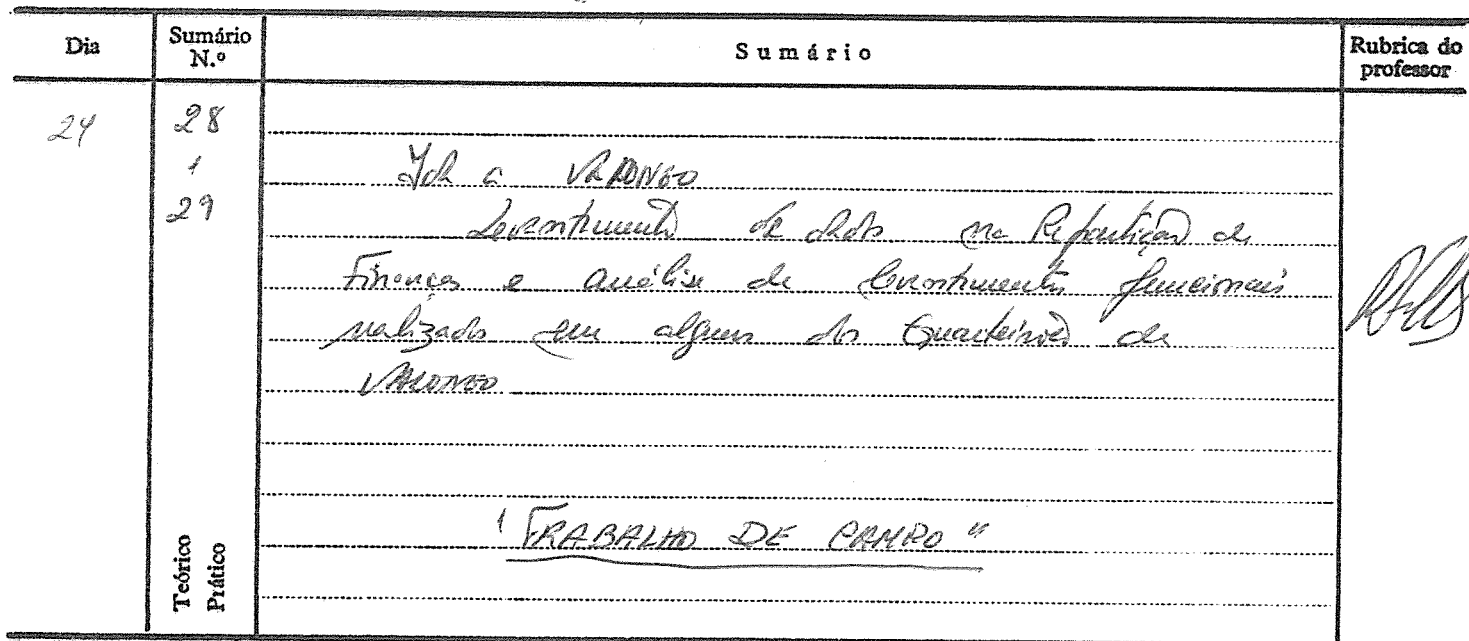 Dia Sumário N.º Sumário Rubrica do professor
24 28
Ida a VALONGO
29 Levantamento de dados na Repartição de
Finanças e análise de levantamentos funcionais
realizados em alguns dos Quarteirões de
VALONGO
"TRABALHO DE CAMPO"
Teórico
Prático